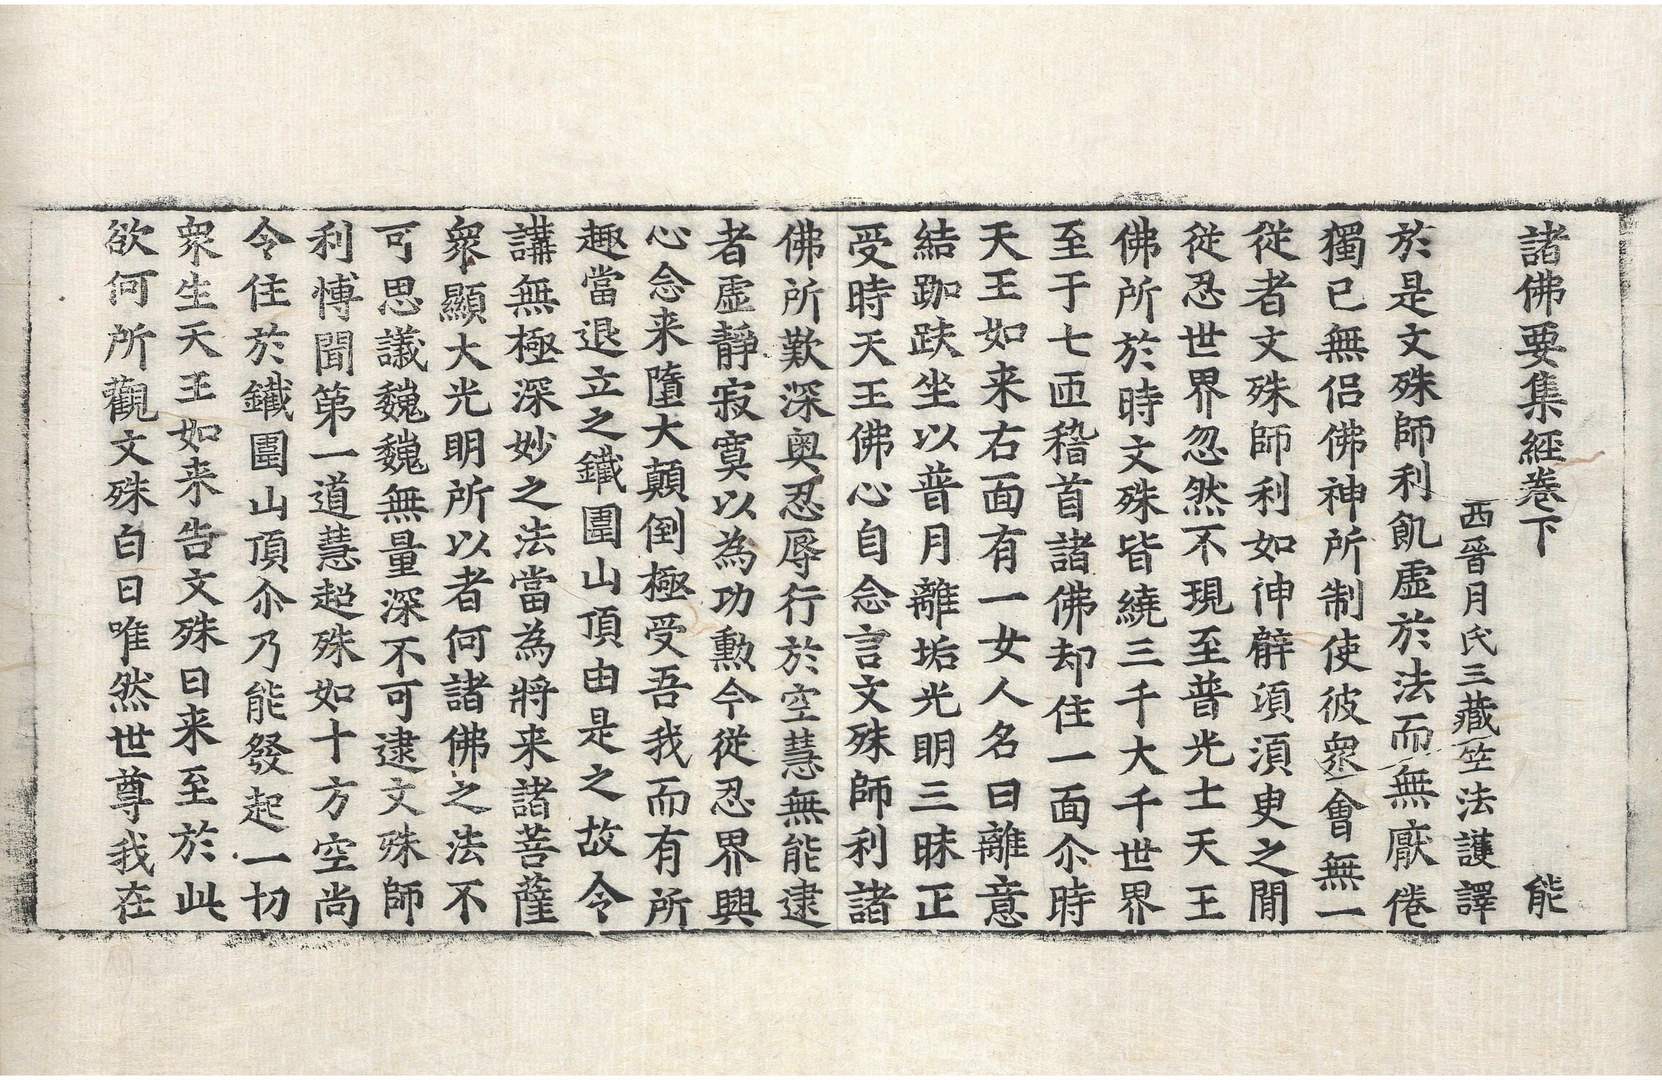 諸佛要集經卷下 能
西晉月氏三藏竺法護譯
於是文殊師利飢虛於法而無厭惓
獨已無侣佛神所制使彼衆會無一
從者文殊師利如伸臂頃須臾之閒
從忍世界忽然不現至普光士天王
佛所於時文殊皆繞三千大千世界
至于七帀稽首諸佛却住一面尒時
天王如来右面有一女人名曰離意
結跏趺坐以普月離垢光明三昧正
受時天王佛心自念言文殊師利諸
佛所歎深奥忍辱行於空慧無能逮
者虛靜寂寞以為功勳今從忍界興
心念来墮大顛倒極受吾我而有所
趣當退立之鐵圍山頂由是之故令
講無極深妙之法當為將来諸菩薩
衆顯大光明所以者何諸佛之法不
可思議巍巍無量深不可逮文殊師
利愽聞第一道慧超殊如十方空尚
令住於鐵圍山頂尒乃能發起一切
衆生天王如来告文殊曰来至於此
欲何所觀文殊白曰唯然世尊我在